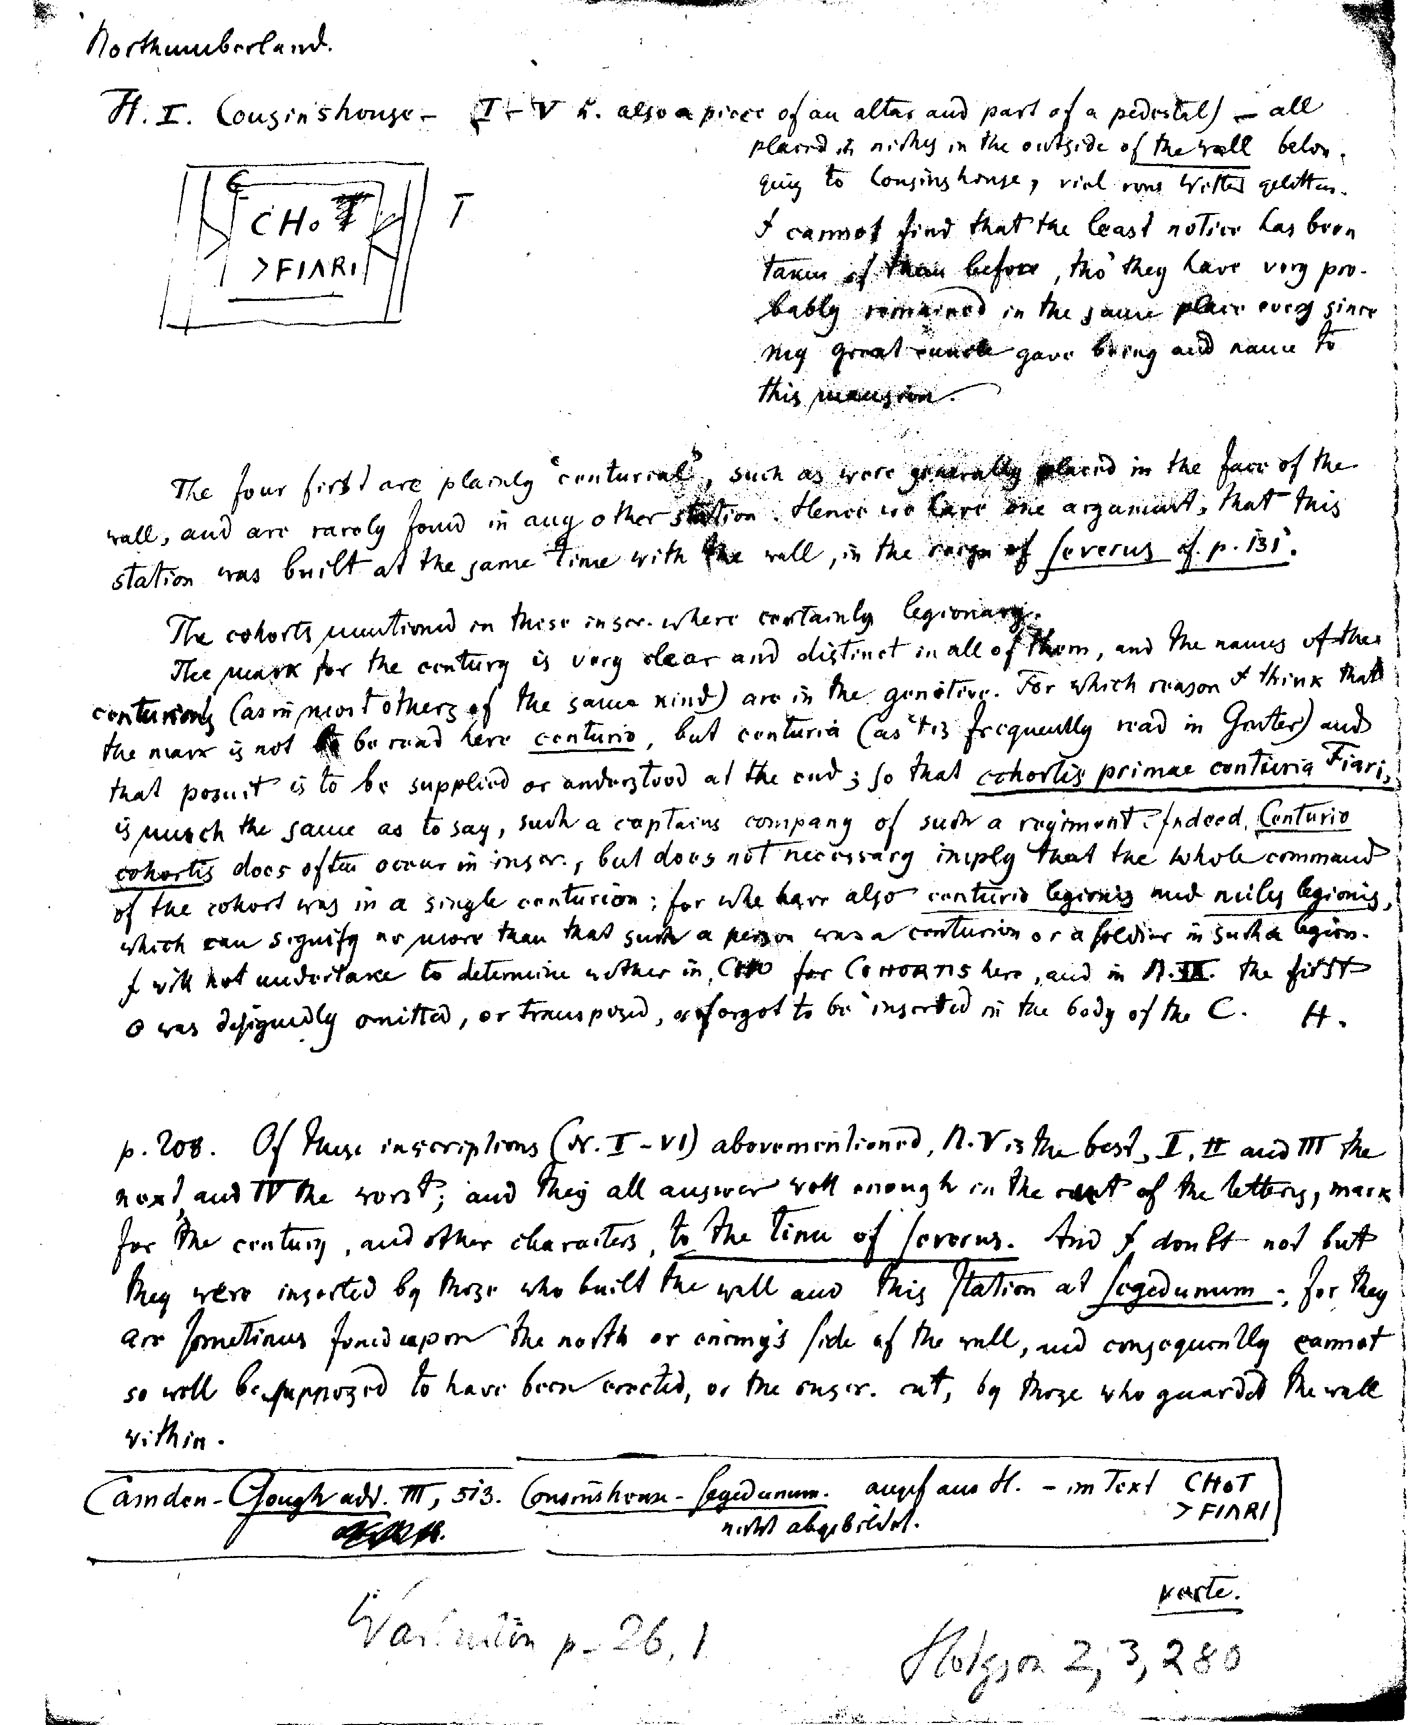 Northumberland.
H. I. Cousinshouse – I–V h. also a piece of an altar and part of a pedestal) – all
placed in niches in the outside of the wall belon-
ging to Cousinshouse, viel vom Wetter gelitten.
I cannot find that the least notice has been
taken of them before, tho' they have very pro-
bably remained in the same place every since
my great uncle gave being and name to
this mansion.
CHoT T
>FIARI
The four first are plainly "centurial", such as were generally placed in the face of the
wall, and are rarely found in any other station. Hence we have one argument, that this
station was built at the same time with the wall, in the reign of Severus cf. p. 131.
The cohorts mentioned in these inscr. where certainly legionary.
The mark for the century is very clear and distinct in all of them, and the names of the
centurions (as in most others of the same kind) are in the genitive. For which reason I think that
the mark is not to be read here centurio, but centuria (as 'tis frequently read in Gruter) and
that posuit is to be supplied or understood at the end; so that cohortis primae centuria Fiari,
is much the same as to say, such a captains company of such a regiment. Indeed, Centurio
cohortis does often occur in inscr., but does not necessary imply that the whole command
of the cohort was in a single centurion; for whe have also centurio legionis and miles legionis,
which can signify no more than that such a person was a centurion or a soldier in such a legion.
I will not undertake to determine wether in CHO for COHORTIS here, and in N. III. the first
O was designedly omitted, or transposed, or forgot to be inserted in the body of the C. H.
p. 208. Of these inscriptions (N. I–VI) abovementioned, N. V is the best, I, II and III the
next, and IV the worst; and they all answer well enough in the cut of the letters, mark
for the century, and other characters, to the time of Severus. And I doubt not but
they were inserted by those who built the wall and this station at Segedunum; for they
are sometimes found upon the north or enemy's side of the wall, and consequently cannot
so well be supposed to have been erected, or the inscr. cut, by those who guarded the wall
within.
Camden-Gough add. III, 513. Cousinshouse – Segedunum. aus H. – im Text CHoT
nicht abgebildet. >FIARI
Karte.
p. 26, 1
Hodgson 2, 3, 280